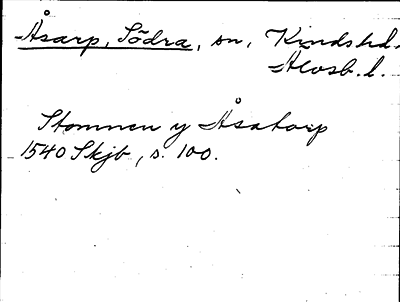 Åsarp, Södra, sn, Kinds hd.
Älvsb. l.
Stommen y Åsatorp
1540 Skjb, s. 100.